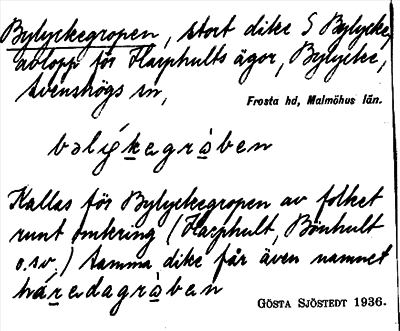 Bylyckegropen, stort dike S Bylycke,
avlopp för Harphults ägor, Bylycke,
Svenshögs sn,
Frosta hd, Malmöhus län.
bəlýkegràben
Kallas för Bylyckegropen av folket
runt omkring (Harphult, Bönhult
o.s.v.) Samma dike får även namnet
háredagràben
GÖSTA SJÖSTEDT 1936.